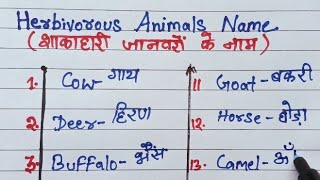 Herbivorous Animals Name
(शाकाहारी जानवरों के नाम)
1. Cow - गाय
2. Deer - हिरण
3. Buffalo - भैंस
11 Goat - बकरी
12. Horse - घोड़ा
13. Camel - ऊँ